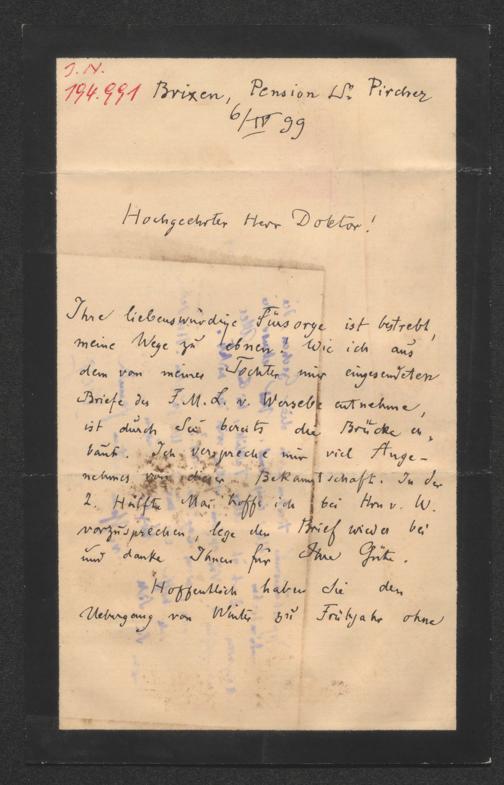 J. N.
194.991
Brixen, Pension Dr. Pircher
6/IV 99
Hochgeehrter Herr Doktor!
Ihre liebenswürdige Fürsorge ist bestrebt,
meine Wege zu ebnen! Wie ich aus
dem von meiner Tochter mir eingesendeten
Briefe des F.M.L. v. Wersebe entnehme,
ist durch Sie bereits die Brücke er-
baut. Ich verspreche mir viel Ange-
nehmes von dieser Bekanntschaft. In der
2. Hälfte Mai hoffe ich bei Hrn v. W.
vorzusprechen, lege den Brief wieder bei
und danke Ihnen für Ihre Güte.
Hoffentlich haben Sie den
Uebergang von Winter zu Frühjahr ohne